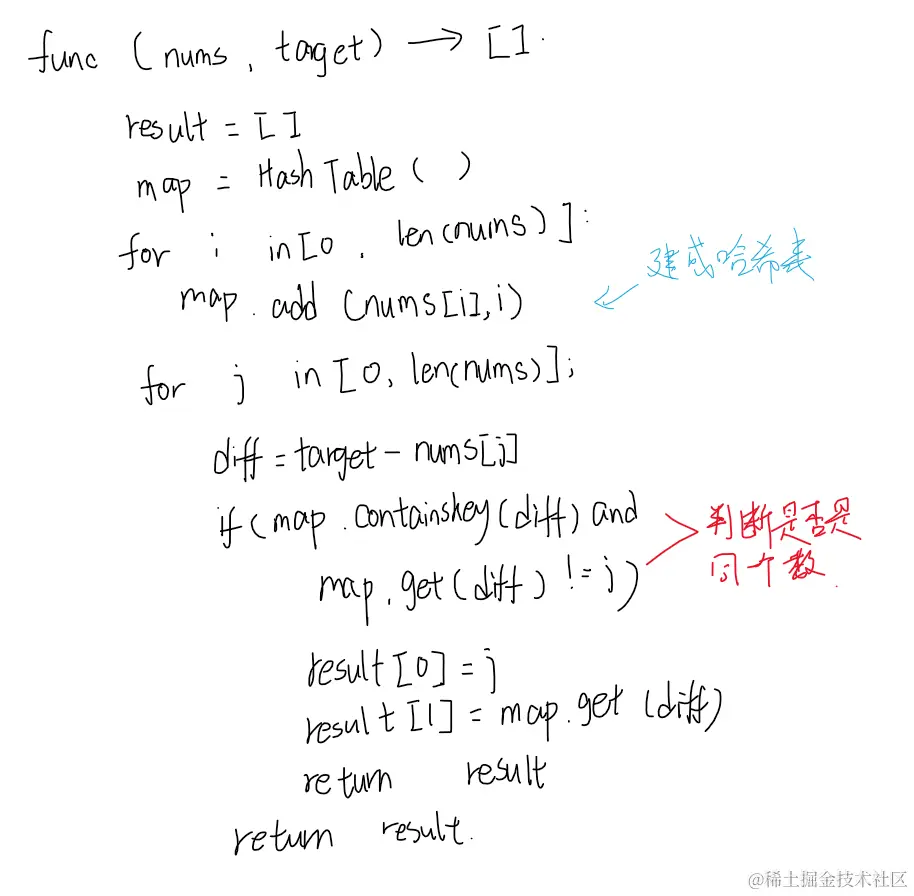 func (nums, target) → [].
result = []
map = HashTable ( )
for i in [0, len(nums)]:
map.add (nums[i], i)
建成哈希表
for j in [0, len(nums)];
diff = target - nums[j]
if (map.containskey(diff) and
map.get(diff) != j)
判断是否是
同个数.
result[0] = j
result[1] = map.get (diff)
return result
return result.
@稀土掘金技术社区